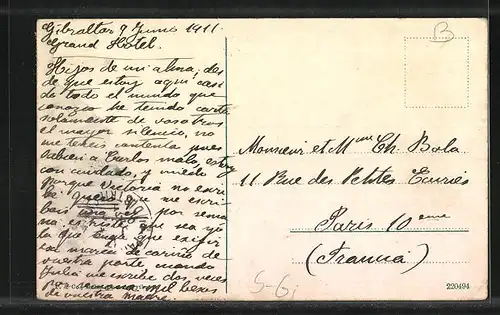 Gibraltar 9 Junio 1911.
Grand Hotel.
Hijos de mi alma; des
de que estoy aqui casi
de todo el mundo que
conozco he tenido carta
solamente de vosotros
el mayor silencio, no
me teneis contenta pues
sabia a Carlos malo, estoy
con cuidado, y miedo
porque Victoria no escri
be. Quiero que me escri
bais una vez por sema
na es triste que sea yo
la que tenga que exigir
esa marca de cariño de
vuestra parte cuando
Julia me escribe dos veces
por semana mil besos
de vuestra madre.
B
Monsieur et Mme Ch. Bola
11 Rue des Petites Ecuries
Paris 10eme
(Francia)
S-Gi
220494